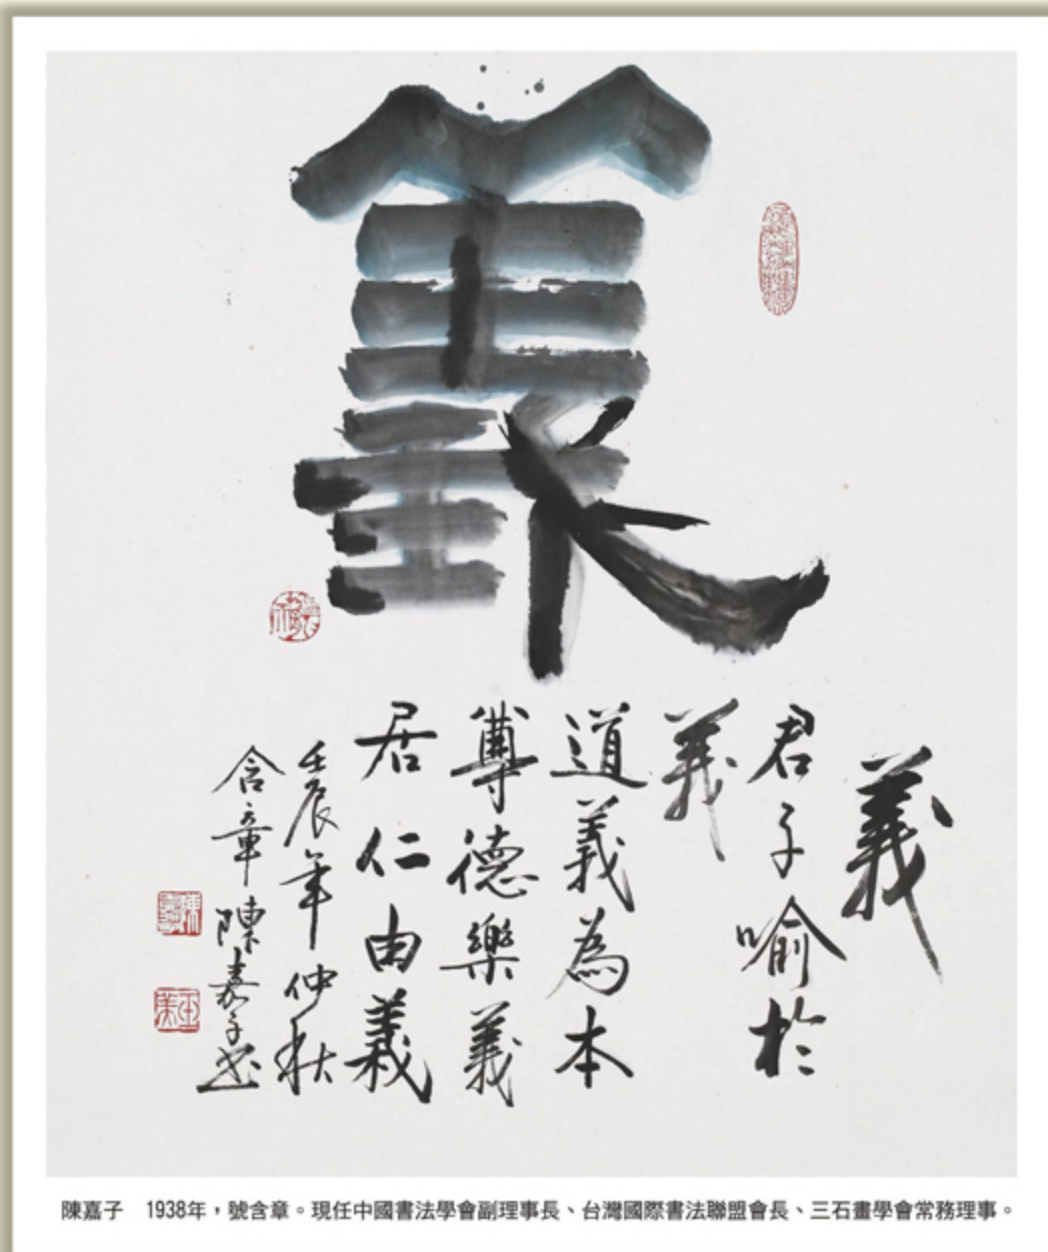 義
義
君子喻於
義
道義為本
尊德樂義
居仁由義
壬辰年仲秋
含章陳嘉子書
陳嘉子　1938年，號含章。現任中國書法學會副理事長、台灣國際書法聯盟會長、三石畫學會常務理事。